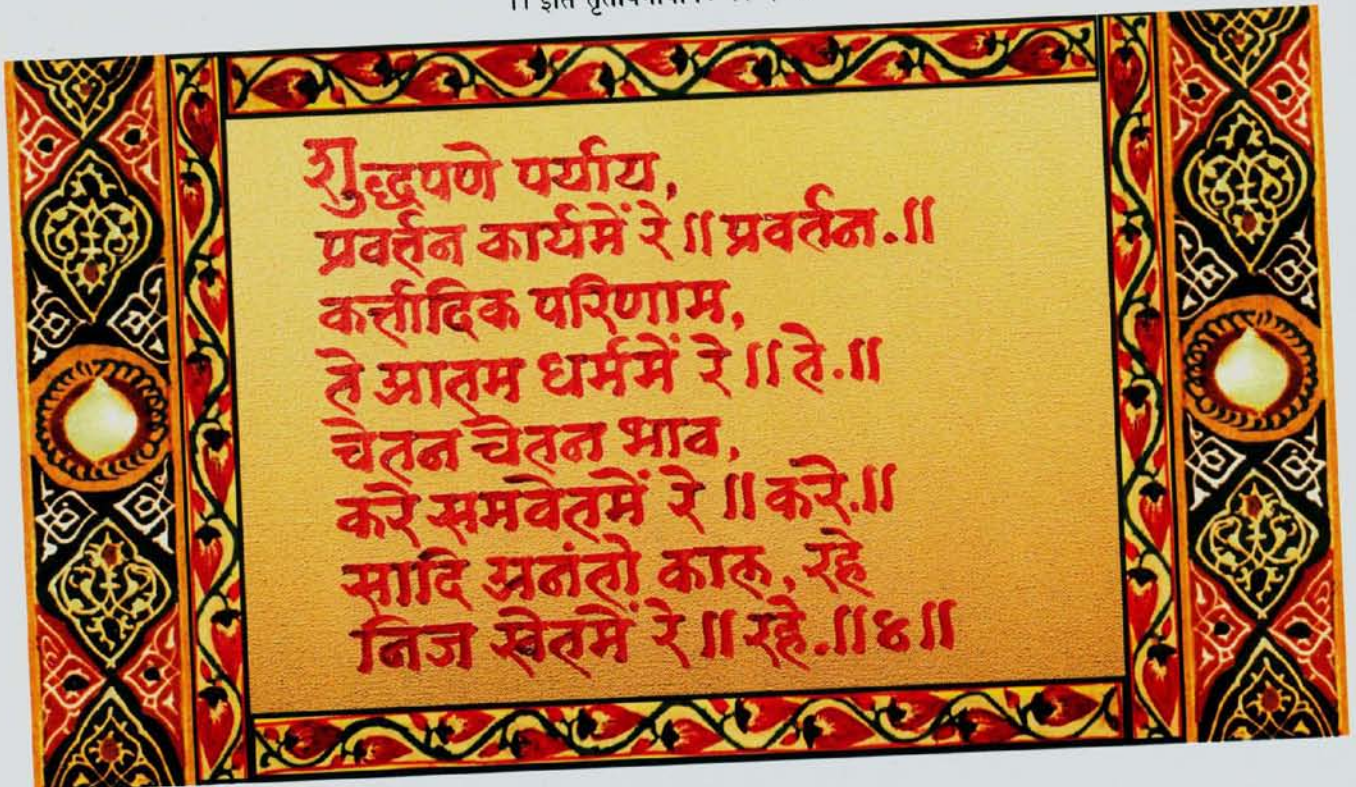 ।। इति
शुद्धपणे पर्याय,
प्रवर्तन कार्यमें रे ॥ प्रवर्तन.॥
कर्त्तादिक परिणाम,
ते आतम धर्ममें रे ॥ ते.॥
चेतन चेतन भाव,
करे समवेतमें रे ॥ करे.॥
सादि अनंतो काल, रहे
निज खेतमें रे ॥ रहे.॥४॥